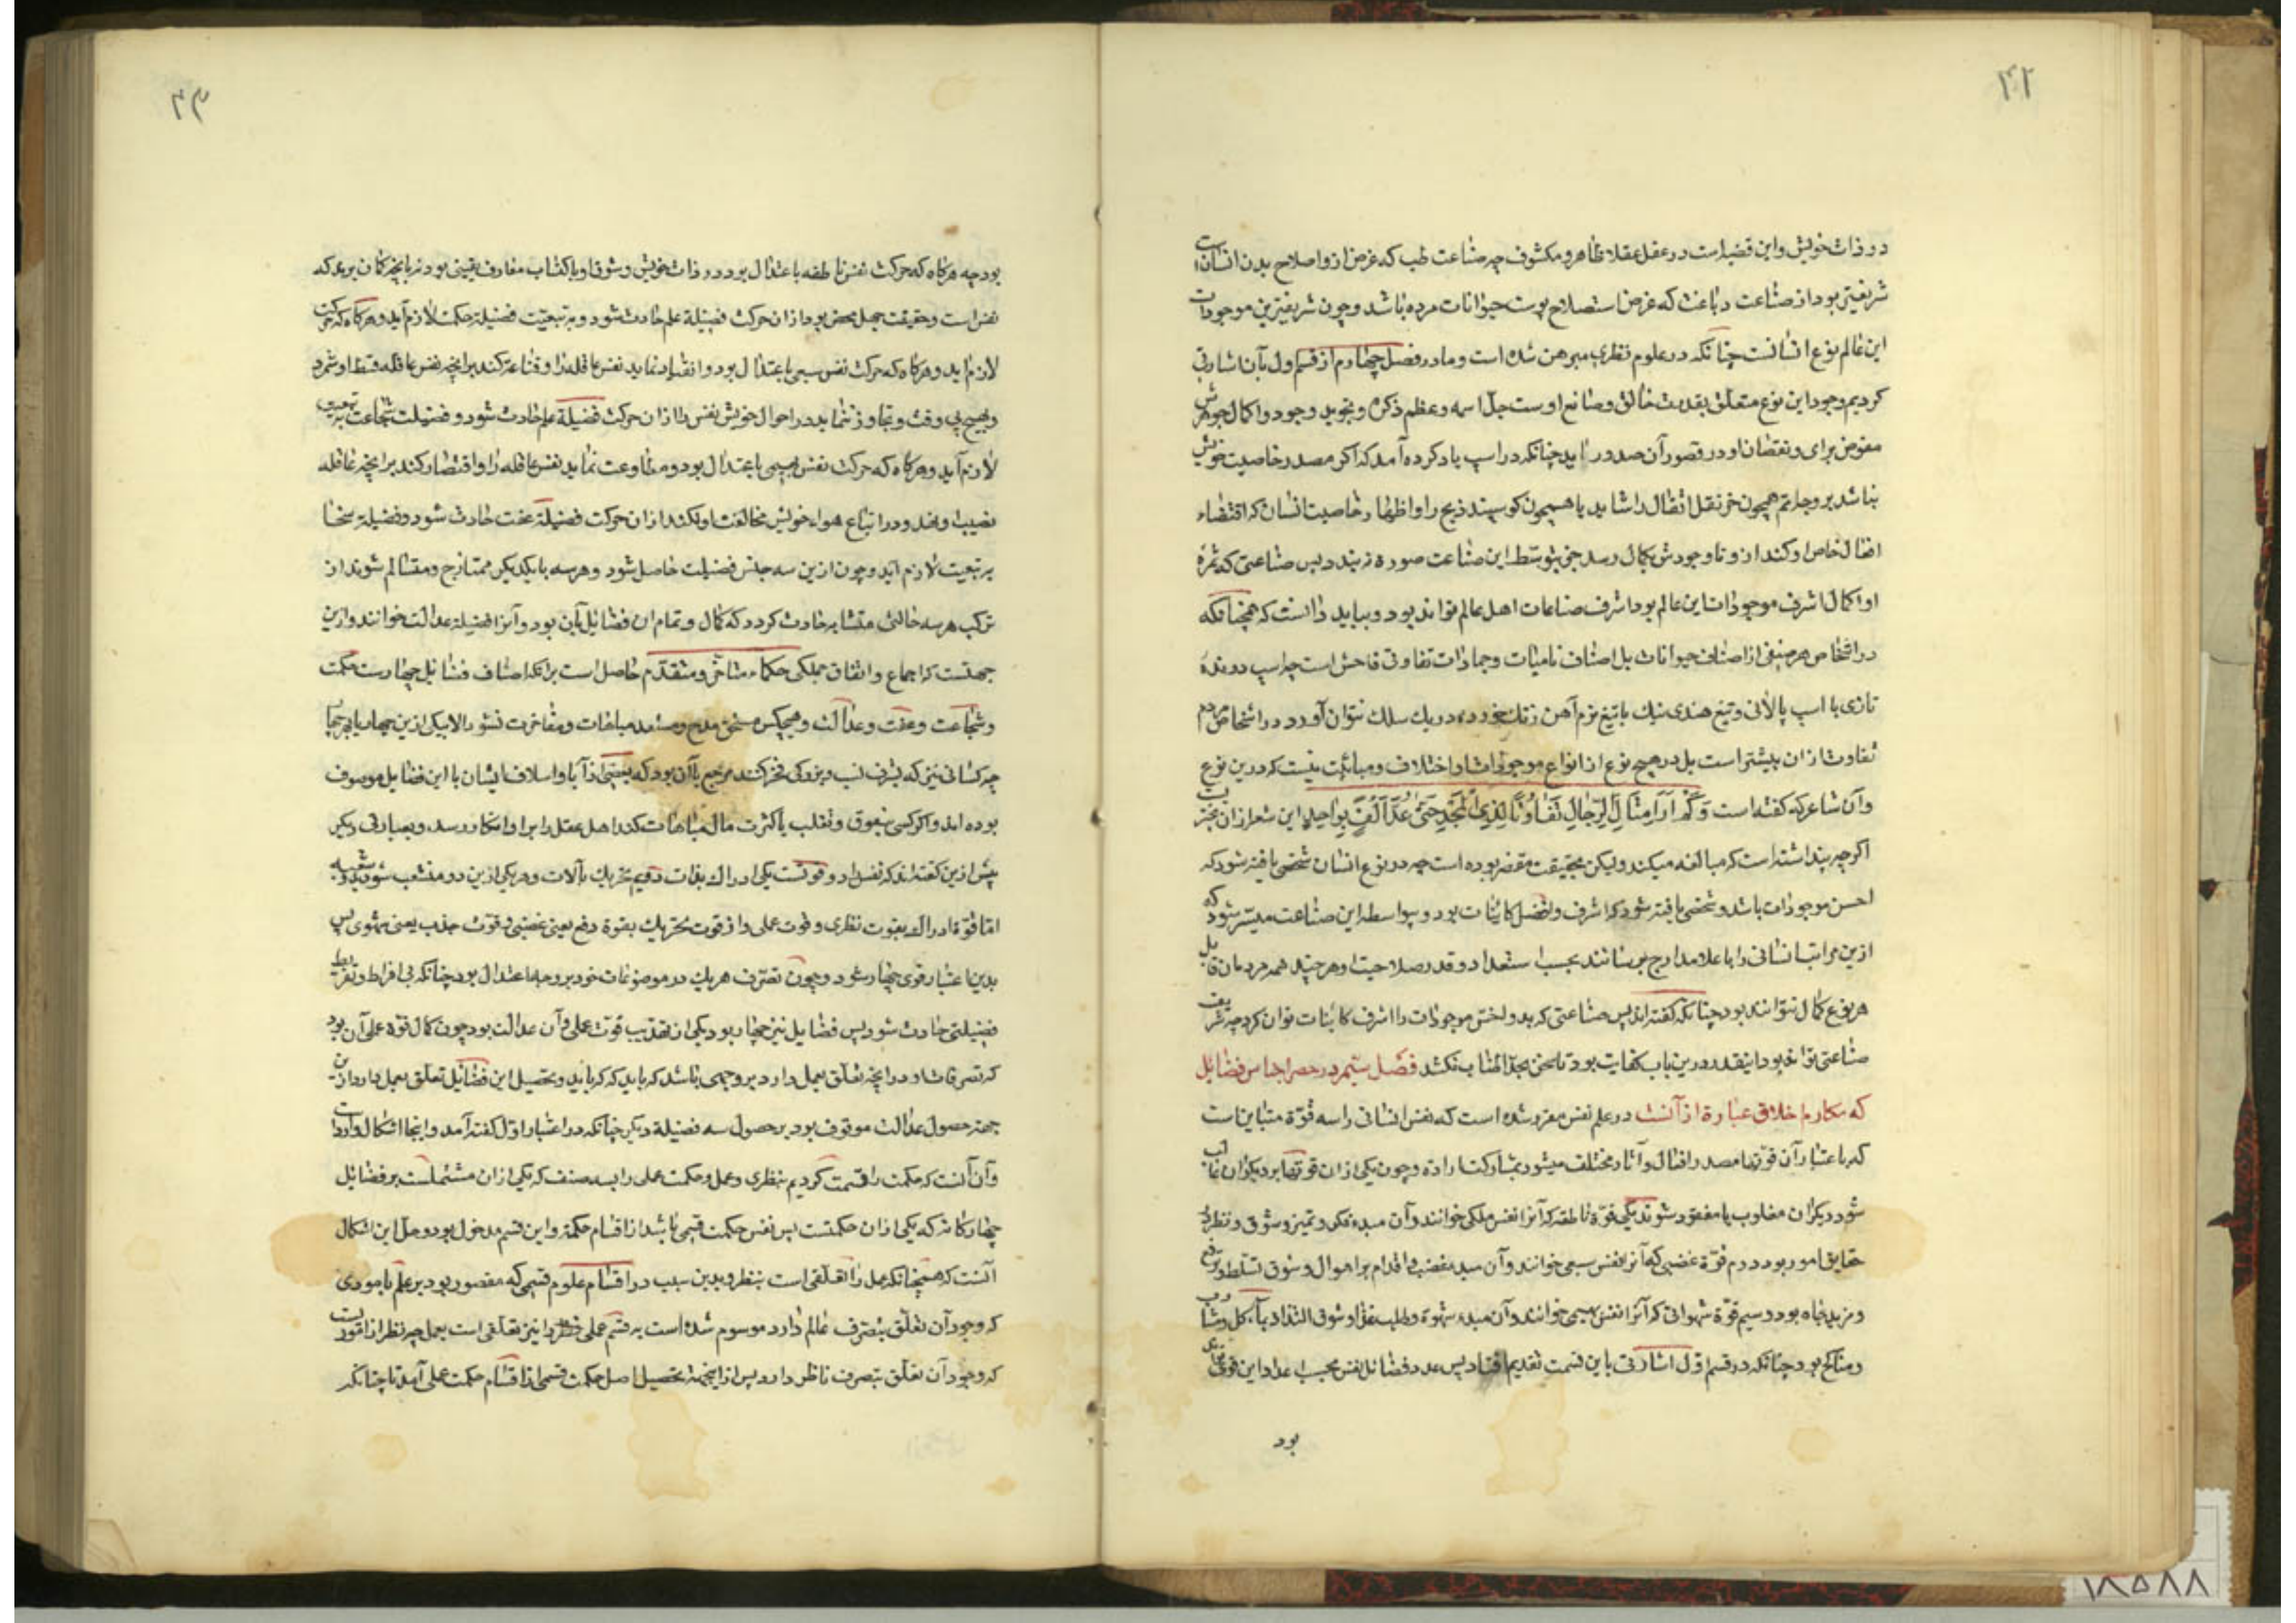 ۴۲
در ذات خویش و این قضیه است در عقل عقلا ظاهر و مکشوف چه صناعت طب که غرض ازو اصلاح بدن انسان است
شریفتر بود از صناعت دباغت که غرض استصلاح پوست حیوانات مرده باشد و چون شریفترین موجودات
این عالم نوع انسانست چنانکه در علوم نظری مبرهن شده است و ما در فصل چهارم از قسم اول بآن اشارتی
کردیم وجود این نوع متعلق بقدرت خالق و صانع اوست جل اسمه و عظم ذکره و تجوید وجود و اکمال جوهرش
مفوض برای و نقصان او در قصور آن صدور نیابد چنانکه در اسپ یاد کرده آمد که اگر مصدر خاصیت خویش
نباشد بر وجه اتم همچون خر نقل اثقال را شاید یا همچون گوسپند ذبح را و اظهار خاصیت انسان که اقتضاء
افعال خاص او کند ازو تا وجودش بکمال رسد جز بتوسط این صناعت صورة نبندد پس صناعتی که ثمرهٔ
او اکمال اشرف موجودات این عالم بود اشرف صناعات اهل عالم تواند بود و بباید دانست که همچنانکه
در اشخاص هر صنفی از اصناف حیوانات بل اصناف نامیات و جمادات تفاوتی فاحش است چه اسپ دوندهٔ
تازی با اسپ پالانی و تیغ هندی نیک با تیغ نرم آهن زنگ خورده در یک سلک نتوان آورد در اشخاص مردم
تفاوت ازان بیشتر است بل در هیچ نوع از انواع موجودات اختلاف و مباینت نیست که درین نوع
و آن شاعر که گفته است وَلَمْ اَرَ اَمْثَالَ الرِّجَالِ تَفَاوُتًا لَدَی الْمَجْدِ حَتّٰی عُدَّ اَلْفٌ بِوَاحِدِ این شعر ازان بهتر
اگرچه پنداشته است که مبالغه میکند ولیکن بحقیقت مقصر بوده است چه در نوع انسان شخصی یافته شود که
اخس موجودات باشد و شخصی یافته شود که اشرف و افضل کاینات بود و بواسطه این صناعت میسر شود که
ازین مراتب انسانی را با علا مدارج برسانند بحسب استعداد و قدر صلاحیت او هرچند همه مردمان قابل
هر نوع کمال نتوانند بود چنانکه گفته اند پس صناعتی که بدو اخس موجودات را اشرف کاینات توان کرد چه شریف
صناعتی تواند بود اینقدر درین باب کفایت بود تا سخن بحد اطناب نکشد فصل سیم در حصر اجناس فضایل
که مکارم اخلاق عبارة از آنست در علم نفس مقرر شده است که نفس انسانی را سه قوّة متباین است
که باعتبار آن قوتها مصدر افعال و آثار مختلف میشود بمشارکت ارادة و چون یکی ازان قوتها بر دیگران غالب
شود دیگران مغلوب یا مفقود شوند یکی قوّة ناطقه که آنرا نفس ملکی خوانند و آن مبدء فکر و تمیز و شوق و نظر در
حقایق امور بود دوم قوّة غضبی که آنرا نفس سبعی خوانند و آن مبدء غضب و اقدام بر اهوال و شوق تسلط و ترفع
و مزید جاه بود و سیم قوّة شهوانی که آنرا نفس بهیمی خوانند و آن مبدء شهوة و طلب غذا و شوق التذاذ بمآکل و مشارب
و مناکح بود چنانکه در قسم اوّل اشارتی باین قسمت تقدیم افتاد پس عدد فضایل نفس بحسب عداد این قوی
بود
۴۳
بود چه هرگاه که حرکت نفس ناطقه باعتدال بود در ذات خویش و شوق او باکتساب معارف یقینی بود نه بآنچه گمان برند که
یقین است و حقیقت جهل محض بود ازان حرکت فضیلة علم حادث شود و به تبعیت فضیلة حکمت لازم آید و هرگاه که حرکت
لازم آید و هرگاه که حرکت نفس سبعی باعتدال بود و انقیاد نماید نفس عاقله را و قناعة کند بر آنچه نفس عاقله قسط او شمرد
و تهیج بی وقت و تجاوز ننماید در احوال خویش نفس را ازان حرکت فضیلة حلم حادث شود و فضیلت شجاعت به تبعیت
لازم آید و هرگاه که حرکت نفس بهیمی باعتدال بود و مطاوعت نماید نفس عاقله را و اقتصار کند بر آنچه عاقله
نصیب او نهد و در اتباع هواء خویش مخالفت او نکند ازان حرکت فضیلة عفت حادث شود و فضیلة سخا
به تبعیت لازم آید و چون ازین سه جنس فضیلت حاصل شود و هر سه با یکدیگر ممتازج و متسالم شوند از
ترکب هر سه حالتی متشابه حادث گردد که کمال و تمام آن فضایل بآن بود و آنرا فضیلة عدالت خوانند و ازین
جهتست که اجماع و اتفاق جملگی حکماء متأخر و متقدم حاصل است بر آنکه اصناف فضایل چهارست حکمت
و شجاعت و عفت و عدالت و هیچکس مستحق مدح و مستعد مباهات و مفاخرت نشود الا بیکی ازین چهار یا بهر چهار
چه کسانی نیز که بشرف نسب و بزرگی فخر کنند مرجع با آن بود که بعضی از آبا و اسلاف ایشان با این فضایل موصوف
بوده اند و اگر کسی بتفوق و تغلب یا کثرت مال مباهات کند اهل عقل را برو انکار رسد و بعبارتی دیگر
پیش ازین گفته اند که نفس را دو قوتست یکی ادراک بذات دوم تحریک بآلات و هر یکی ازین دو منشعب شود بدو شعبه
اما قوّة ادراک بقوت نظری و قوت عملی و از قوت تحریک بقوة دفع یعنی غضبی و قوت جذب یعنی شهوی پس
بدین اعتبار قوی چهار شود و چون تصرف هر یک در موضوعات خود بر وجه اعتدال بود چنانکه بی افراط و تفریط
فضیلتی حادث شود پس فضایل نیز چهار بود یکی از تهذیب قوت عملی و آن عدالت بود چون کمال قوّة عملی آن بود
که تصرفات او در آنچه تعلق بعمل دارد بر وجهی باشد که باید که کرد باید و تحصیل این فضایل تعلق بعمل دارد ازین
جهة حصول عدالت موقوف بود بر حصول سه فضیلة دیگر چنانکه در اعتبار اوّل گفته آمد و اینجا اشکال وارد است
و آن آنست که حکمت را قسمت کردیم بنظری و عمل و حکمت عملی را بسه صنف که یکی ازان مشتملست بر فضایل
چهارگانه که یکی ازان حکمتست پس نفس حکمت قسمی باشد از اقسام حکمة و این قسم مدخول بود و حل این اشکال
آنست که همچنانکه عمل را تعلقی است بنظر و بدین سبب در اقسام علوم قسمی که مقصور بود بر علم بامودی
که وجود آن تعلق بتصرف عالم دارد موسوم شده است به قسم عملی نظر را نیز تعلقی است بعمل چه نظر از اموریست
که وجود آن تعلق بتصرف ناظر دارد پس ازینجهة تحصیل اصل حکمت قسمی از اقسام حکمت عملی آمد تا چنانکه
۱۸۵۸۸